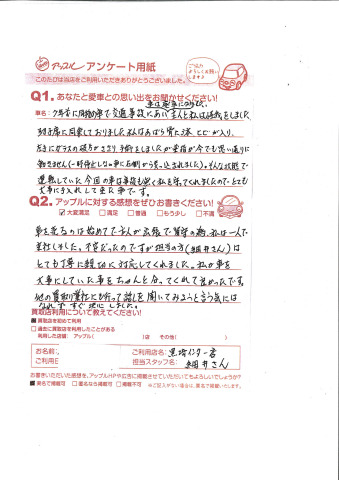 アップル アンケート用紙
このたびは当店をご利用いただきありがとうございました。
ご協力よろしくお願いします!
Q1. あなたと愛車との思い出をお聞かせください!
車名:
7年前に
の車で交通事故にあい主人と私は
しました
助手席に同乗しておりました私はあばら骨と
ヒビが入り、
左手にガラスの破片がささり手術をしましたが
指が今でも思い通りに
動きません(一時停止しない車に右側から突っ込まれました)。そんな状態で
運転していた今回の車は事故も無く私を守ってくれましたのでとても
大事に手入れして来た車です。
Q2. アップルに対する感想をぜひお書きください!
☑大変満足 □満足 □普通 □もう少し □不満
車を売るのは始めてで主人が出張で留守の為、私は一人で
来社しました。不安だったのですが担当の方(細井さん)は
とても丁寧に親切に対応してくれました。私が車を
大事にしていた事をちゃんと分ってくれて良かったです。
他の買取り業社にも行って話しを聞いてみようと言う気には
なれず すぐ決心しました。
買取店利用について教えてください!
■買取店を初めて利用
□過去に買取店を利用したことがある
利用した店舗: アップル( )店 その他( )
お名前:
ご利用店名:
インター店
ご利用日
担当スタッフ名: 細井さん
お書きいただいた感想を、アップルHPや広告に掲載させていただいてもよろしいでしょうか?
■実名で掲載可 □匿名なら掲載可 □掲載不可 ※ご記入がない場合は、匿名で掲載いたします。